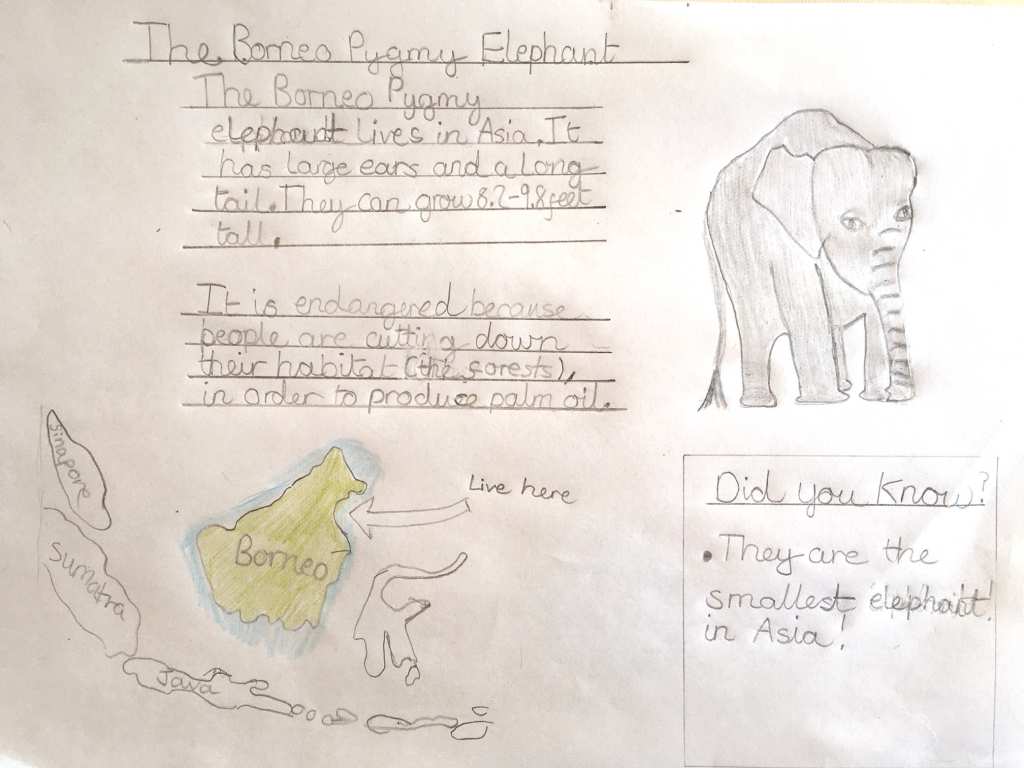 The Borneo Pygmy Elephant
The Borneo Pygmy
elephant lives in Asia. It
has large ears and a long
tail. They can grow 8.2-9.8 feet
tall.
It is endangered because
people are cutting down
their habitat (the forests),
in order to produce palm oil.
Sinapore
Sumatra
Java
Borneo
Live here
Did you know?
• They are the
smallest elephant!
in Asia!